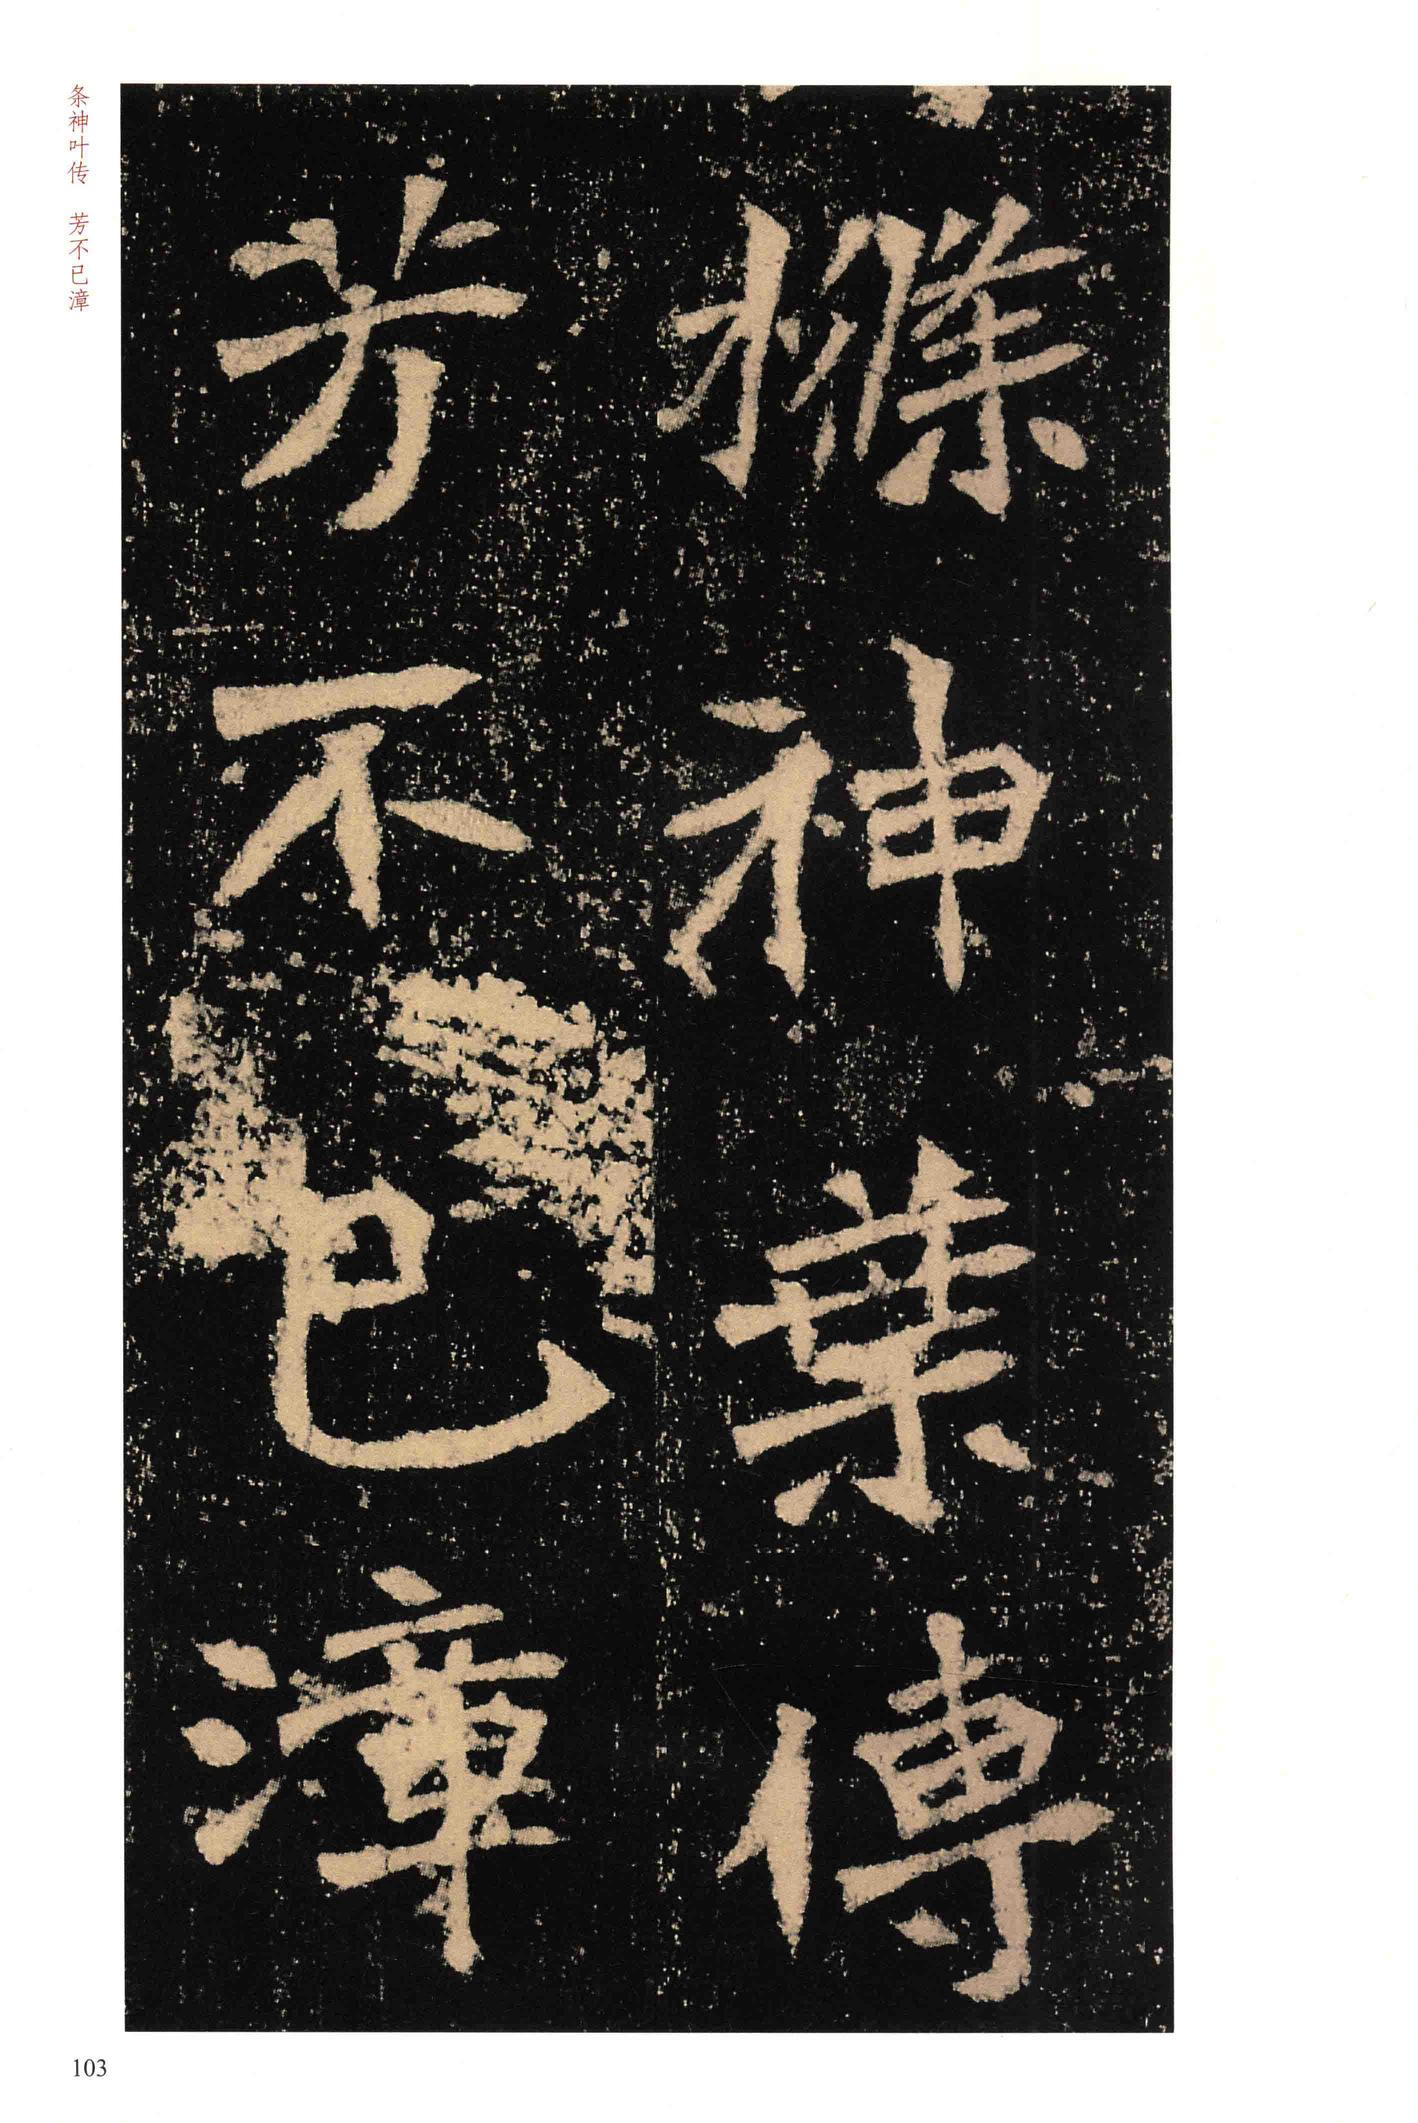 條神葉傳
芳不已漳
条神叶传 芳不已漳
103